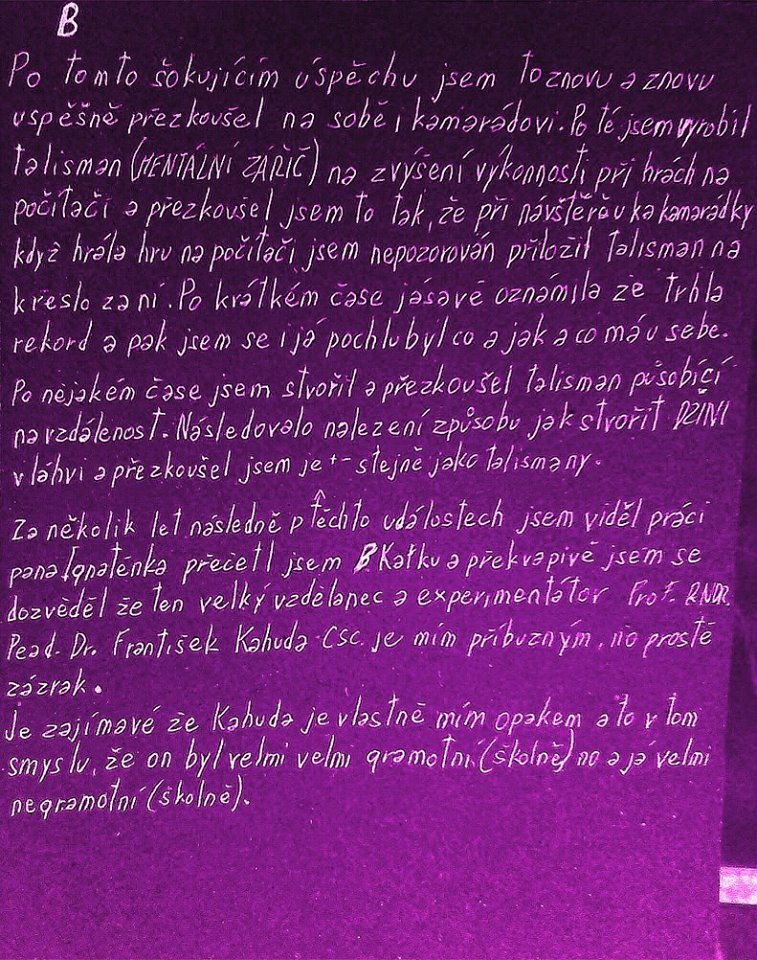 B
Po tomto šokujícím úspěchu jsem to znovu a znovu
uspěšně přezkoušel na sobě i kamarádovi. Po té jsem vyrobil
talisman (MENTÁLNÍ ZÁŘIČ) na zvýšení výkonnosti při hrách na
počítači a přezkoušel jsem to tak, že při návštěvě u kamarádky
když hrála hru na počítači jsem nepozorován přiložil talisman na
křeslo za ní. Po krátkém čase jásavě oznámila že trhla
rekord a pak jsem se i já pochlubyl co a jak a co má u sebe.
Po nějakém čase jsem stvořil a přezkoušel talisman působící
na vzdálenost. Následovalo nalezení způsobu jak stvořit DŽINI
v láhvi a přezkoušel jsem je +- stejně jako talismany.
Za několik let následně p těchto událostech jsem viděl práci
pana Ignatěnka přečetl jsem B. Kafku a překvapivě jsem se
dozvěděl že ten velký vzdělanec a experimentátor Prof. RNDR.
Pead. Dr. František Kahuda CSc. je mím příbuzným, no prostě
zázrak.
Je zajímavé že Kahuda je vlastně mím opakem a to v tom
smyslu, že on byl velmi velmi gramotní (školně) no a já velmi
negramotní (školně).